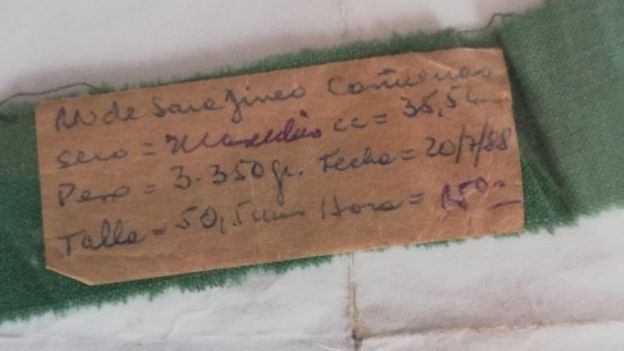 RN de Sara Jineo Cañuenas
sexo = Masculino cc = 35,5 cm
Peso = 3.350gr. Fecha = 20/7/88
Talla = 50,5 cms Hora = 150